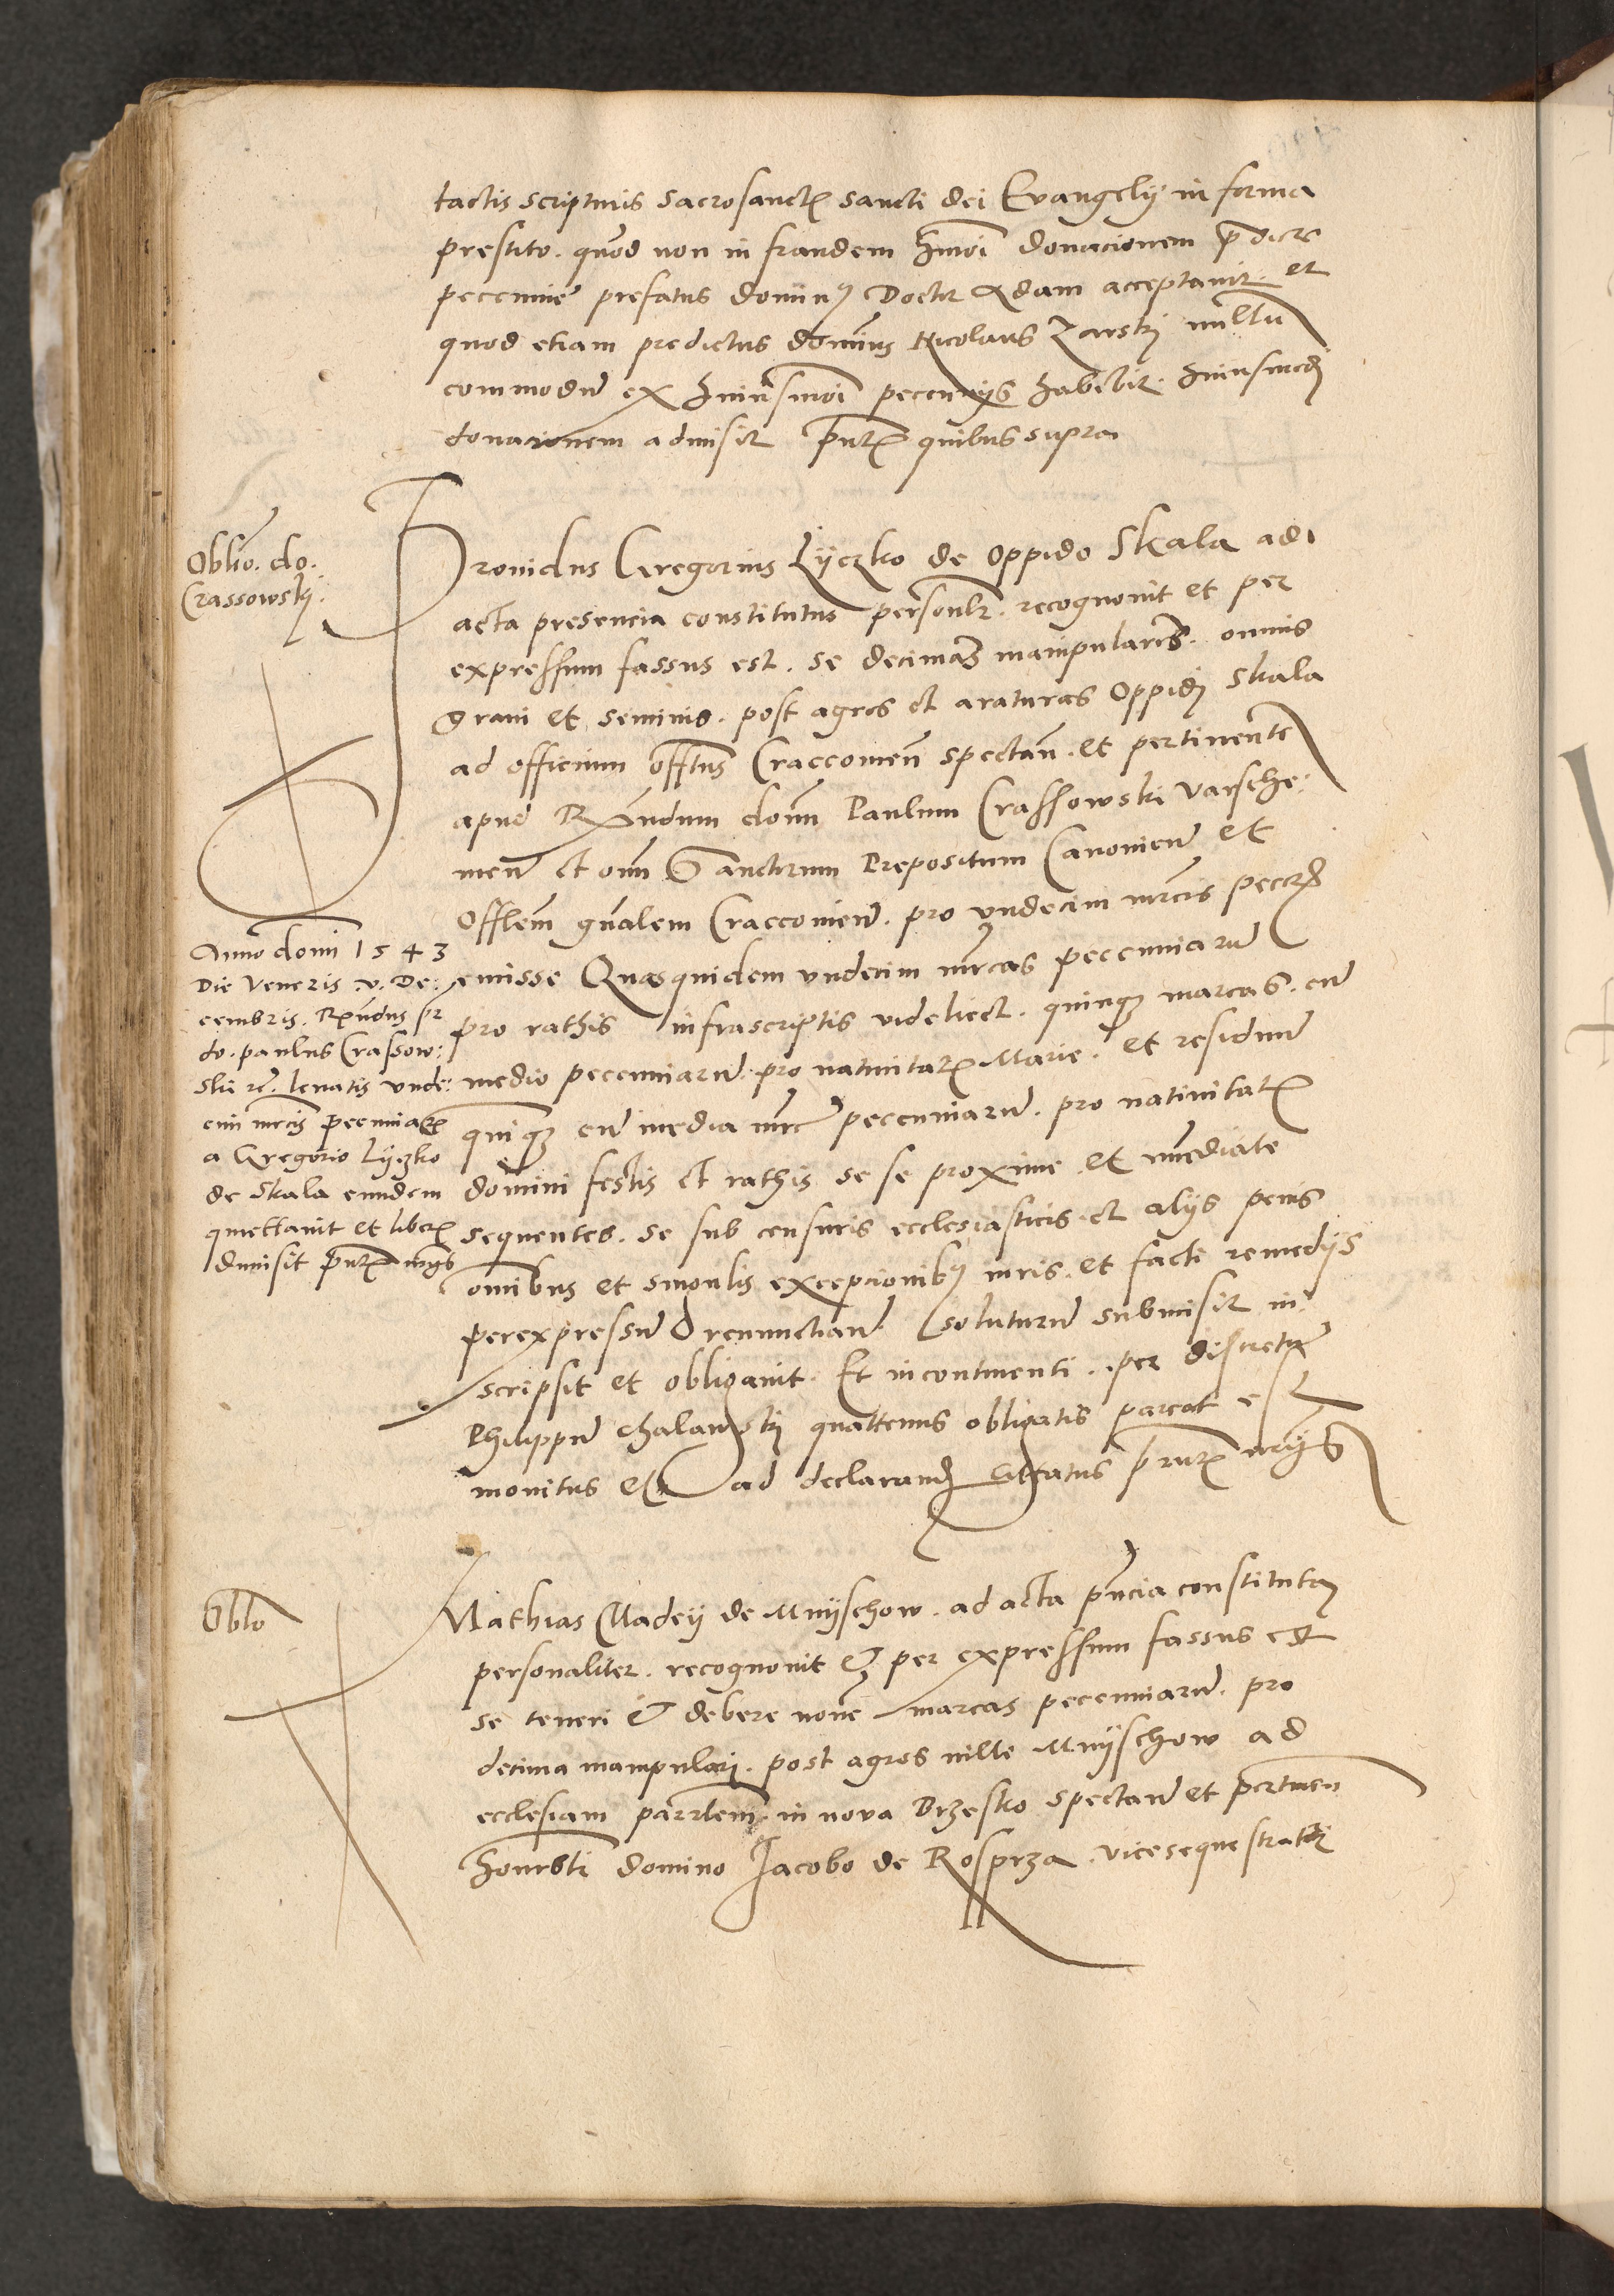 tactis scripturis sacrosanctis sancti dei Evangelij in forma
prestito. quod non in fraudem hmoi donacionem predicte
pecunie prefatus dominus Doctor Adam acceptavit. et
quod etiam predictus dominus Nicolaus Zarski nullu
commodu ex huiusmoi pecunijs habebit. huiusmodi
donacionem admisit pntibus quibus supra
Oblio. do.
Crassowskj.
Providus Gregorius Lÿczko de oppido Skala ad
acta presencia constitutus personlr. recognouit et per
expressum fassus est. se decimas manipulares. omnis
grani et seminis. post agros et araturas Oppidj Skala
ad officium offltus Craccouien spectan. et pertinente
apud Rndum domn Paulum Crassowski Varsche:
uien et omn Sanctorum Prepositum Canonicu et
Offlem gnalem Craccouien. pro vndecim mrcis peccar
emisse Quasquidem vndecim mrcas pecuniaru
pro rathis infrascriptis videlicet. quinqz marcas. cu
medio pecuniaru. pro natiuitate Marie. et residuu
quinqz cu media mrc pecuniaru. pro nativitate
domini festis et rathis se se proxime et immediate
sequentes. se sub censuris ecclesiasticis et alijs penis
omibus et singulis excepcionibz iuris. et facti remedijs
per expressu renunctian soluturu submisit in
scripsit et obligauit. Et incontinenti. per discretu
Philippu Chalawskj quattenus obligatis pareat est
monitus et ad declarand citatus pntibus
Anno domi 1543
Die Veneris .v. De:
cembris. Rndus pr
do. paulus Crassow:
ski rc. leuatis vnde:
cim mrcis pecuniar
a Gregorio Lyczko
de Skala eundem
quittauit et liber
dimisit pntibus
Oblo
Mathias Madey de Mnyschow. ad acta pncia constitutus
personaliter. recognouit et per expressum fassus est
se teneri et debere nove marcas pecuniaru. pro
decima manipulari. post agros ville Mnyschow ad
ecclesiam parrlem. in nova Brzesko spectan et pertinen
honrbli domino Jacobo de Rosprza. vicesequestratori